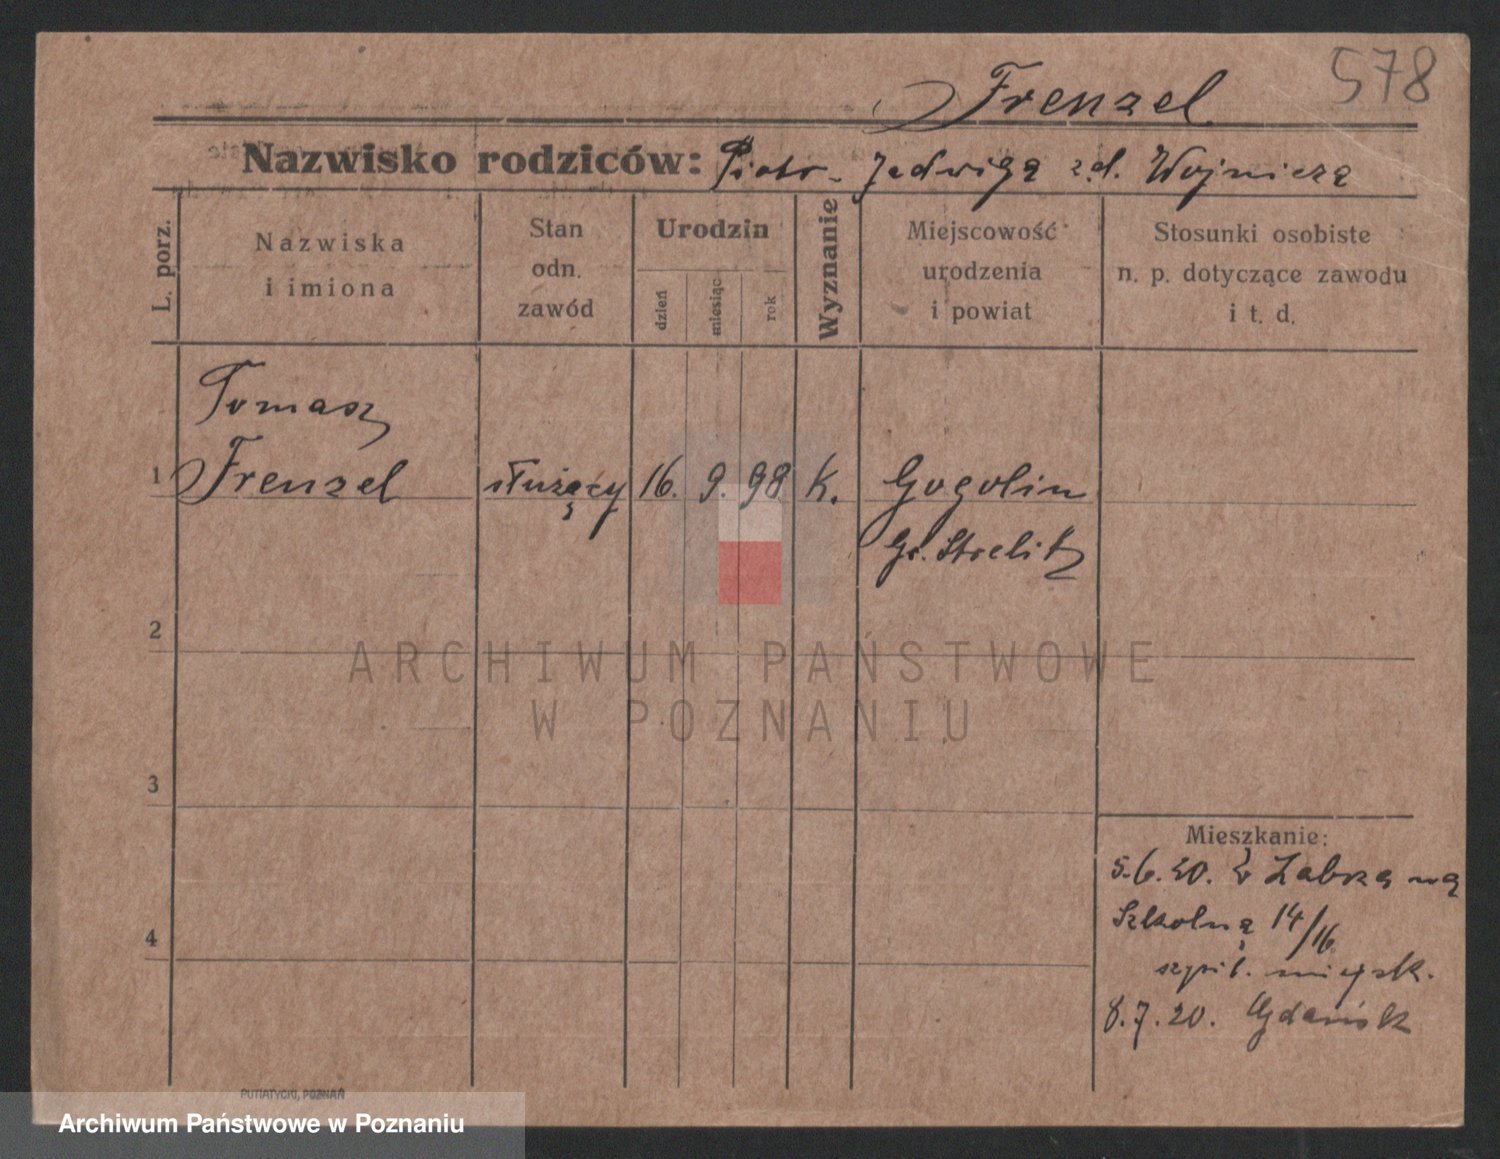 578
Frenzel
Nazwisko rodziców: Piotr - Jadwiga z d.
L. porz.
Nazwiska
i imiona
Stan
odn.
zawód
Urodzin
dzień
miesiąc
rok
Wyznanie
Miejscowość
urodzenia
i powiat
Stosunki osobiste
n. p. dotyczące zawodu
i t. d.
Tomasz
1 Frenzel służący 16. 9. 98 k. Gogolin
Gr. Strelitz
2
ARCHIWUM PAŃSTWOWE
W POZNANIU
3
Mieszkanie:
5.6.20. z Zabrza
Szkolna 14/16
4
szpit. miejsk.
8.7.20. Gdańsk
PUTIATYCKI, POZNAŃ
Archiwum Państwowe w Poznaniu